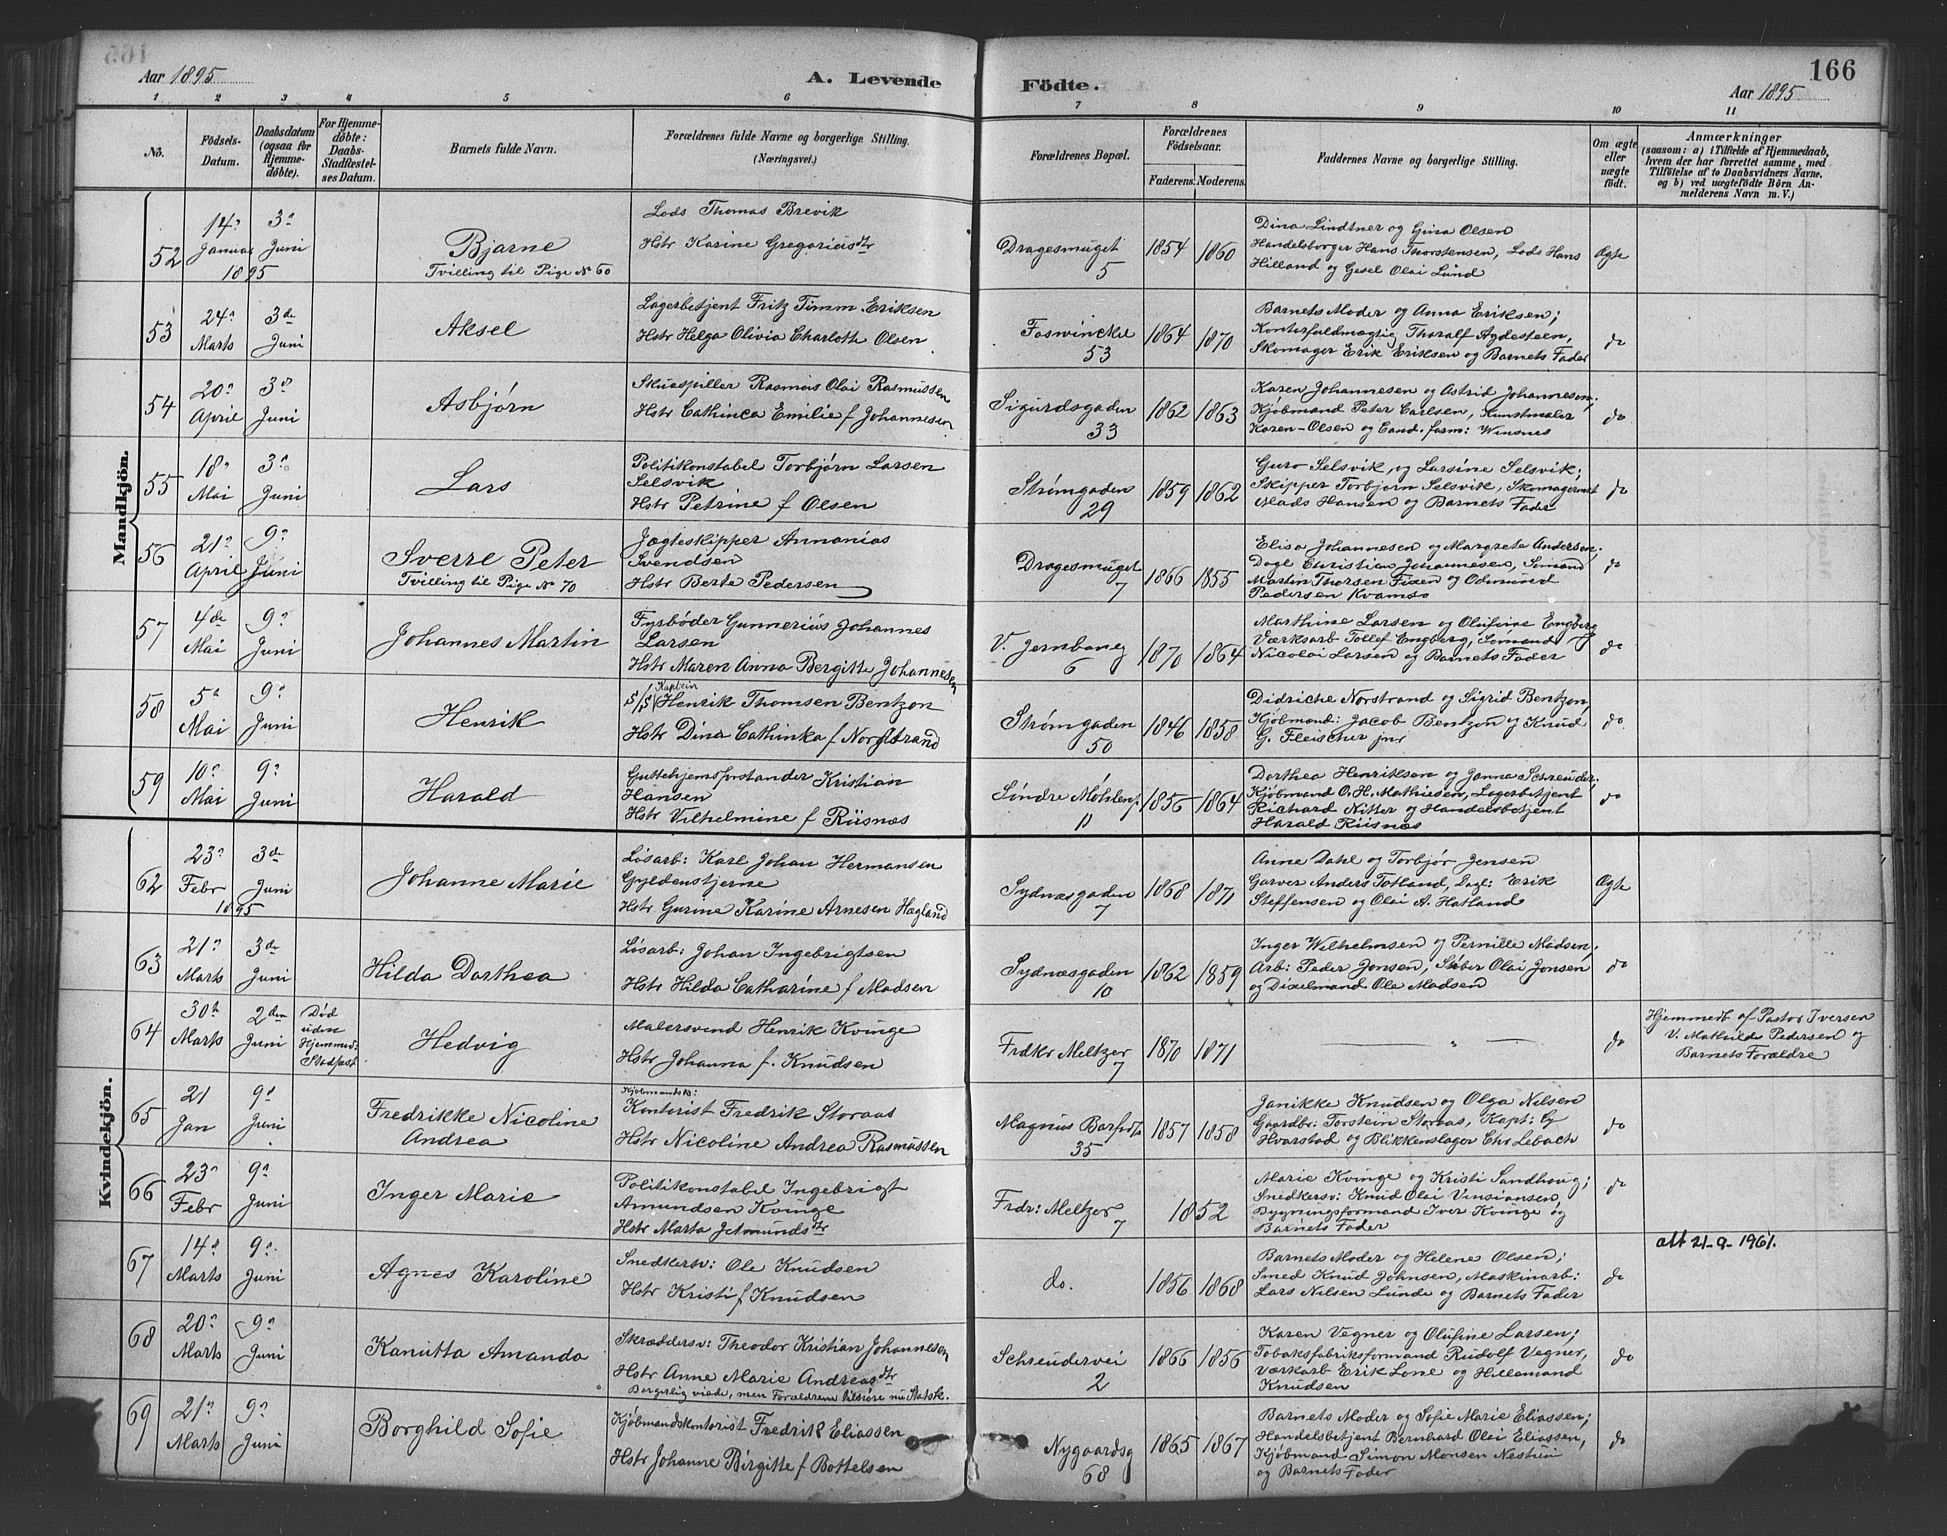 166
Aar 1895 A. Levende Födte. Aar 1895
1 2 3 4 5 6 7 8 9 10 11
No. Födsels-Datum. Daabsdatum (ogsaa for Hjemmedöbte). For Hjemmedöbte: Daabs-Stadfæstelses Datum. Barnets fulde Navn. Forældrenes fulde Navne og borgerlige Stilling. (Næringsvei.) Forældrenes Bopæl. Forældrenes Födselsaar. Faderens. Moderens. Faddernes Navne og borgerlige Stilling. Om ægte eller uægte födt. Anmærkninger (saasom: a) i Tilfælde af Hjemmedaab, hvem der har forrettet samme, med Tilföielse af to Daabsvidners Navne, og b) ved uægtefödte Börn Anmelderens Navn m. V.)
Mandkjön.
52 14de Januar 1895 3de Juni Bjarne
Tvilling til Pige No 60
Lods Thomas Brevik
Hstr Karine Gregoriusdtr
Dragesmuget 5 1854 1860
Dina Lindtner og Gina Olsen
Handelsborger Hans Thorstensen, Lods Hans
Hilland og Gesel Olai Lund
Ægte
53 24de Marts 3de Juni Aksel
Lagerbetjent Fritz Timm Eriksen
Hstr Helga Olivia Charlotte Olsen
Foswinckel 53 1864 1870
Barnets Moder og Anna Eriksen;
Kontorfuldmægtig Thoralf Agdesteen,
Skomager Erik Eriksen og Barnets Fader
do
54 20de April 3de Juni Asbjørn
Skuespiller Rasmus Olai Rasmussen
Hstr Cathinca Emilie f Johannesen
Sigurdsgaden 33 1862 1863
Karen Johannesen og Astrid Johannesen;
Kjøbmand Peter Carlsen, Kunstmaler
Karen-Olsen og Cand. farm: Winsnes
do
55 18de Mai 3de Juni Lars
Politikonstabel Torbjørn Larsen
Selsvik
Hstr Petrine f Olsen
Strømgaden 29 1859 1862
Guro Selsvik, og Larsine Selsvik;
Skipper Torbjørn Selsvik, Skomagermst
Mads Hansen og Barnets Fader
do
56 21de April 9de Juni Sverre Peter
Tvilling til Pige No 70
Jægteskipper Annanias
Svendsen
Hstr Berta Pedersen
Dragesmuget 7 1866 1855
Elisa Johannesen og Margrete Andersen;
Dagl Christian Johannesen, Sømand
Martin Thorsen Fixen og Odmund
Pedersen Kvamso
do
57 4de Mai 9de Juni Johannes Martin
Fyrbøder Gunnerius Johannes
Larsen
Hstr Maren Anna Bergitte Johannesen
V. Jernbaneg 6 1870 1864
Marthine Larsen og Olufine Engberg
Værksarb Tollef Engberg, Sømand
Nicolai Larsen og Barnets Fader
do
58 5te Mai 9de Juni Henrik
Kaptein
S/S Henrik Thomsen Bentzon
Hstr Dina Cathinka f Nordstrand
Strømgaden 50 1846 1858
Didriche Norstrand og Sigrid Bentzon,
Kjøbmand: Jacob Bentzon og Knud
G. Fleischer jnr
do
59 10de Mai 9de Juni Harald
Guttehjemsforstander Kristian
Hansen
Hstr Vilhelmine f Riisnæs
Søndre Møhlenp. 11 1856 1864
Dorthea Henriksen og Janna Schreuder;
Kjøbmand O. H. Mathiesen, Lagerbetjent
Richard Nitter og Handelsbetjent
Harald Riisnæs
do
Kvindekjön.
62 23de Febr 1895 3de Juni Johanne Marie
Løsarb: Karl Johan Hermansen
Gyldenstjerne
Hstr Gurine Karine Arnesen Hægland
Sydnæsgaden 7 1868 1871
Anne Dahl og Torbjør Jensen
Garver Anders Totland, Dagl: Erik
Steffensen og Olai A. Hatland
Ægte
63 21de Marts 3de Juni Hilda Dorthea
Løsarb: Johan Ingebrigtsen
Hstr Hilda Catharine f Madsen
Sydnæsgaden 10 1862 1859
Inger Wilhelmsen og Pernille Madsen;
Arb: Peder Jonsen, Støber Olai Jonsen
og Dixelmand Ole Madsen
do
64 30te Marts 2den Juni Død uden Hjemmed. Stadfæst Hedvig
Malersvend Henrik Kvinge
Hstr Johanna f. Knudsen
Frdkr Meltzer 7 1870 1871
— " —
do
Hjemmedb af Pastor Iversen
V. Mathilde Pedersen og
Barnets Forældre
65 21 Jan 9de Juni Fredrikke Nicoline
Andrea
Kjøbmandsk:
Kontorist Fredrik Storaas
Hstr Nicoline Andrea Rasmussen
Magnus Barfods 35 1857 1858
Janikke Knudsen og Olga Nilsen
Gaardbr: Torstein Storaas, Kapt: G
Hvarstad og Blikkenslager Chr Lebach
do
66 23de Febr 9de Juni Inger Marie
Politikonstabel Ingebrigt
Amundsen Kvinge
Hstr Marta Jetmundsdtr
Frdr: Meltzer 7 1852
Marie Kvinge og Kristi Sandhoug;
Snedkersv: Knud Olai Vinsiansen,
Bygningsformand Iver Kvinge og
Barnets Fader
do
67 14de Marts 9de Juni Agnes Karoline
Snedkersv: Ole Knudsen
Hstr Kristi f Knudsen
do. 1856 1868
Barnets Moder og Helene Olsen;
Smed Knud Johnsen, Maskinarb:
Lars Nilsen Lunde og Barnets Fader
do
att 21-9-1961.
68 20de Marts 9de Juni Kanutta Amanda
Skræddersv: Theodor Kristian Johannesen
Hstr Anne Marie Andreasdtr
Schreudervei 2 1866 1856
Karen Vegner og Olufine Larsen;
Tobaksfabriksformand Rudolf Vegner,
Værkarb Erik Lone og Hillemand
Knudsen
do
69 21de Marts 9de Juni Borghild Sofie
Borgerlig viede, men Forældrene tilhøre nu Statsk.
Kjøbmandskontorist Fredrik Eliassen
Hstr Johanne Birgitte f Bottelsen
Nygaardsg 68 1865 1867
Barnets Moder og Sofie Marie Eliassen;
Handelsbetjent Bernhard Olai Eliassen,
Kjøbmand Simon Monsen Nestun
og Barnets Fader
do